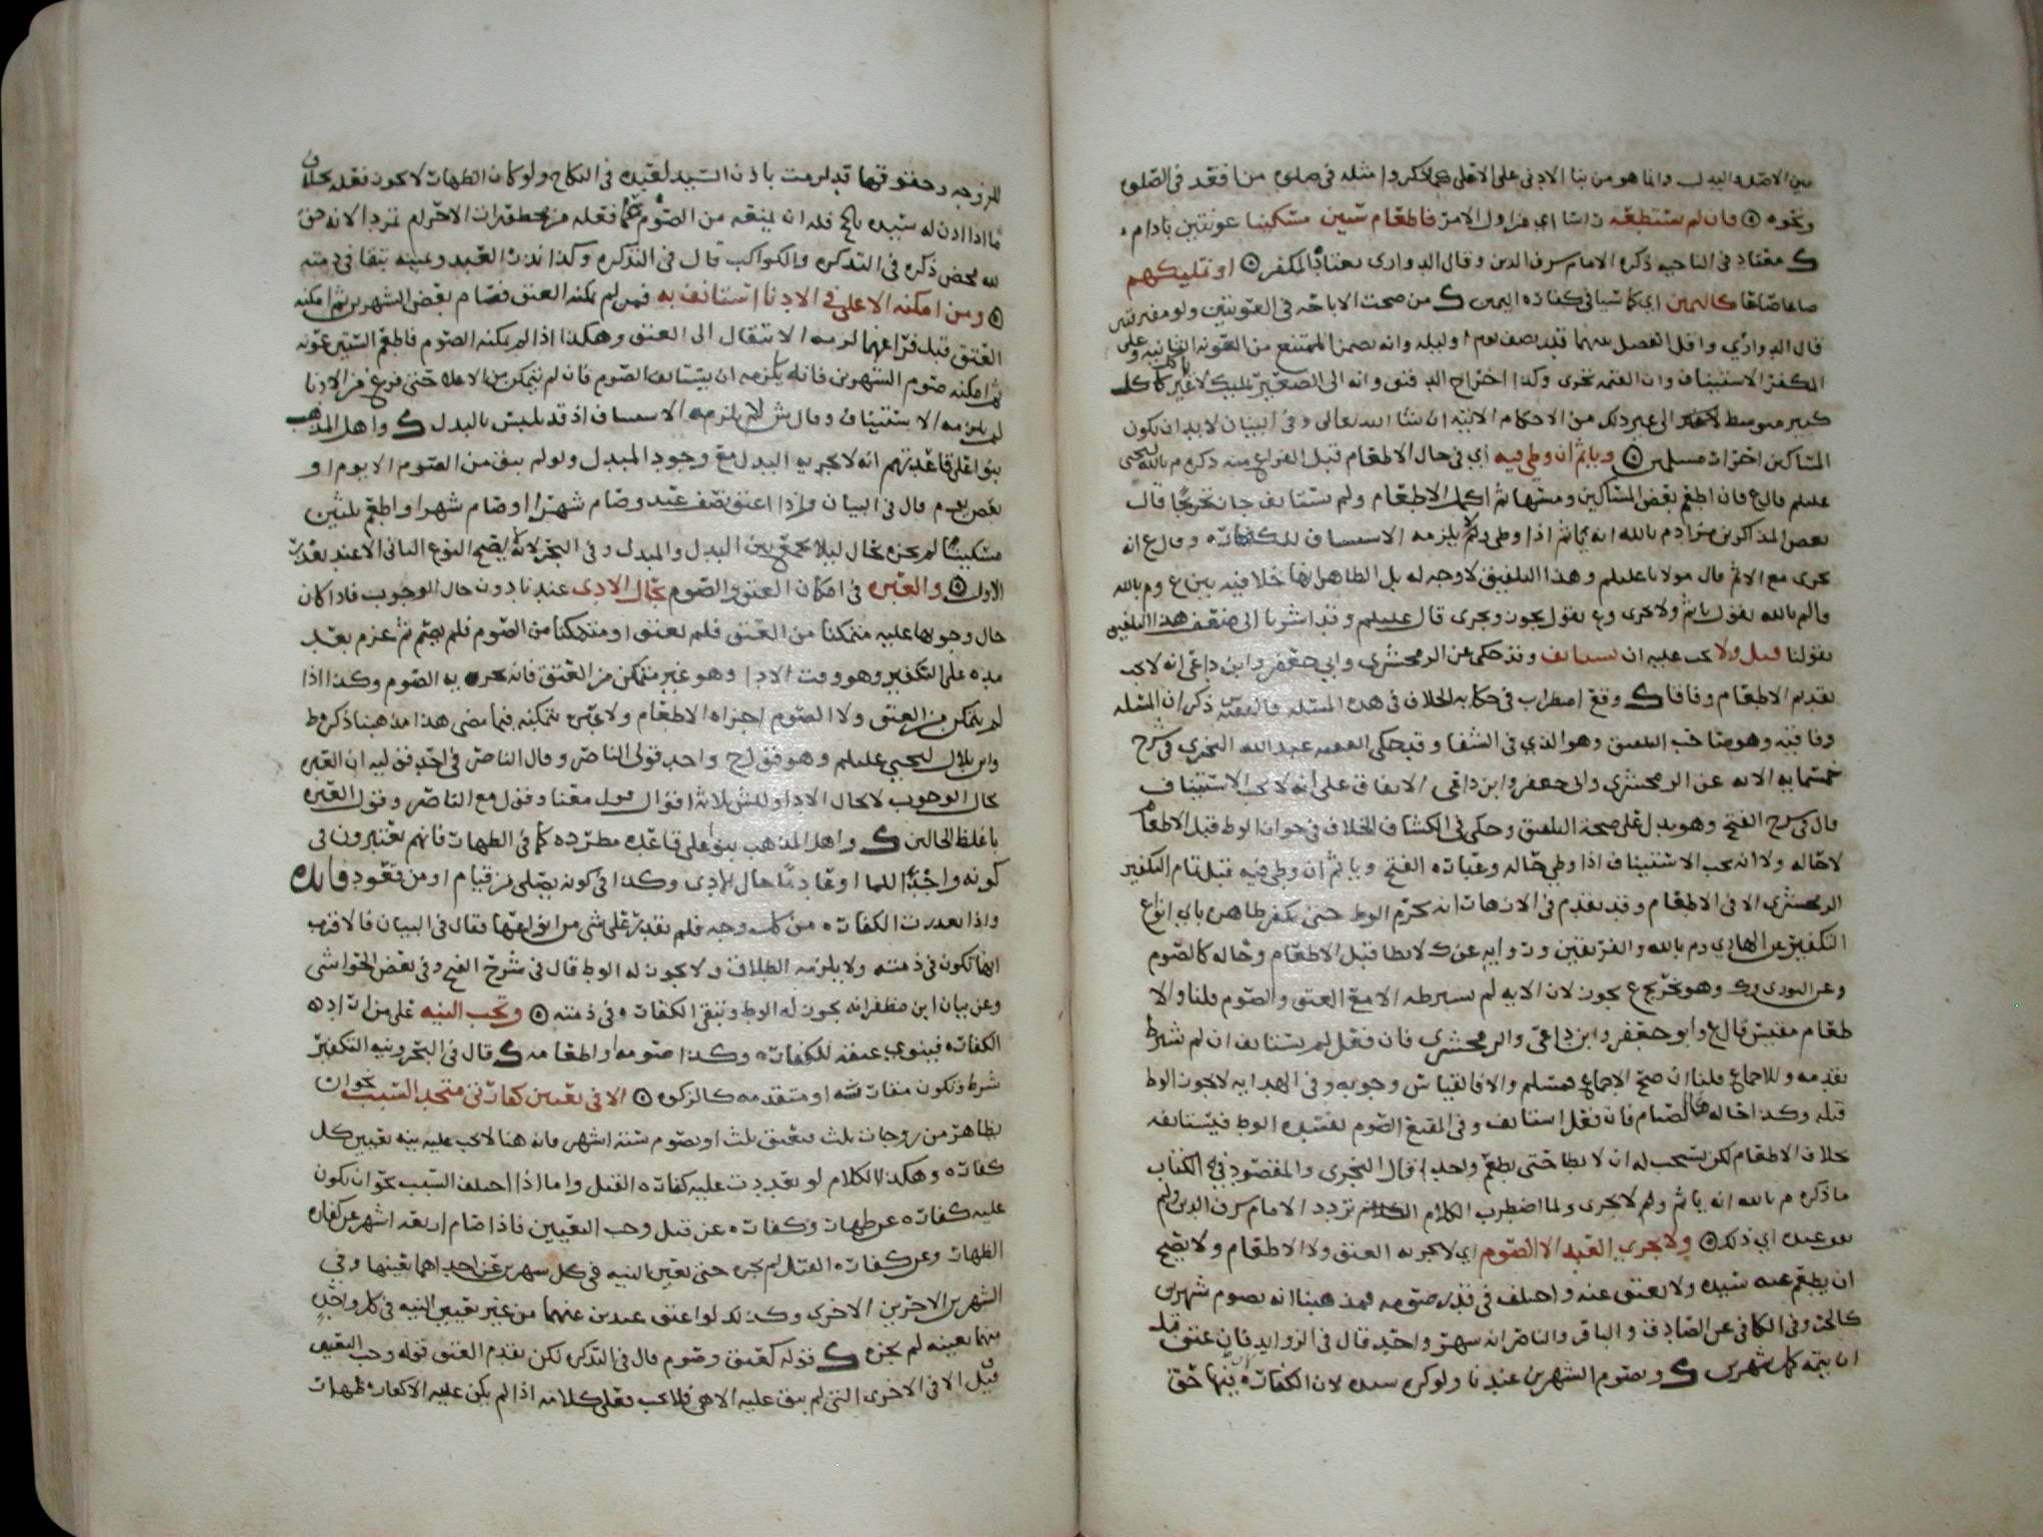 بين الاصل والبدل وانما هو من بنا الادنى على الاعلى كما ذكروا مثله في صلوة من فقد في الصلوة
ونحوه ۞ فان لم يستطعه فاطعام ستين مسكينا عونتين بادام
ك معتاد في الناحية ذكره الامام شرف الدين وقال الدواري بمعتاد المكفر ۞ او تمليكهم
صاعا صاعا كاليمين اي كما سيأتي كفارة اليمين ك من صحت الاباحة في العونتين ولو مفترقتين
قال الدواري واقل الفصل بينهما قدر نصف يوم او ليلة وانه يضمن الممتنع من العونة الثانية وعلى
المكفر الاستيناف وان القيمة تجزي وكذا اخراج الدقيق وانه الى الصغير تمليك لا غير
كبير متوسط الى غير ذلك من الاحكام الاتية ان شا الله تعالى وفي البيان لا بد ان يكون
المساكين احرارا مسلمين ۞ وياثم ان وطي فيه اي في حال الاطعام قبل الفراغ منه ذكره م بالله ليحيى
عليلم قال ع فان اطعم بعض المساكين ومسها ثم اكمل الاطعام ولم يستانف جاز تخريجا قال
بعض المذاكرين مراد م بالله انه ياثم اذا وطي ولم يلزمه الاستيناف للكفارة وقال ع انه
يجزي مع الاثم قال مولانا عليلم وهذا التلفيق لا وجه له بل الظاهر انها خلافية بين ع وم بالله
فالم بالله يقول ياثم ولا يجزي وع يقول يجوز ويجزي قال عليلم وقد اشرنا الى ضعف هذا التلفيق
بقولنا قيل ولا يجب عليه ان يستانف وقد حكى عن الزمخشري وابي جعفر وابن داعي انه لا يجب
تقديم الاطعام وفاقا ك وقع اضطراب في حكاية الخلاف في هذه المسئلة فالفقيه س ذكر ان المسئلة
وفاقية وهو صاحب التلفيق وهو الذي في الشفا وقد حكى الفقيه عبد الله النجري في شرح
خمسماية الاية عن الزمخشري وابي جعفر وابن داعي الاتفاق على انه لا يجب الاستيناف
قال في شرح الفتح وهو يدل على صحة التلفيق وحكى في الكشاف الخلاف في جواز الوطء قبل الاطعام
لا حاله ولا انه يجب الاستيناف اذا وطي حاله وعبارة الفتح وياثم ان وطي فيه قبل تمام التكفير
الزمخشري الا في الاطعام وقد تقدم في الازهار انه يحرم الوطء حتى يكفر ظاهره باي انواع
التكفير عن الهادي وم بالله والفريقين ورواية عن ك لا يطا قبل الاطعام وحاله كالصوم
وعن الثوري وك وهو تخريج ع يجوز لان الاية لم تشرطه الا مع العتق والصوم قلنا والا
طعام مقيس قال ع وابو جعفر وابن داعي والزمخشري فان فعل لم يستانف ان لم شرط
تقدمه وللاجماع قلنا ان صح الاجماع فمسلم والا فالقياس وجوبه وفي الهداية لا يجوز الوطء
قبله وكذا حاله كالصيام فان فعل استانف وفي المقنع الصوم يفسده الوطء فيستانفه
بخلاف الاطعام لكن يستحب له ان لا يطا حتى يطعم واحدا قال النجري والمقصود في الكتاب
ما ذكره م بالله انه ياثم ولم لا يجزي ولما اضطرب الكلام تردد الامام شرف الدين ولم
اي ذلك ۞ ولا يجزي العبد الا الصوم اي لا يجزيه العتق ولا الاطعام ولا يصح
ان يطعم عنه سيده ولا يعتق عنه واختلف في قدر صومه فمذهبنا انه يصوم شهرين
كالحر وفي الكافي عن الصادق والباقر والناصر انه شهر واحد قال في الزوايد فان عتق قبل
ان يتمه كمل شهرين ك ويصوم الشهرين عندنا ولو كره سيده لان الكفارة فيها حق
للزوجة وحقوقها قد لزمت باذن السيد لعبده في النكاح ولو كان الظهار لا يجوز فعله بخلاف
ما اذا اذن له سيده فله ان يمنعه من الصوم عما فعله من محظورات الاحرام لانه حق
لله محض ذكره في التذكرة والكواكب قال في التذكرة وكذا نذر العبد ويمينه يبقا في ذمته
۞ ومن امكنه الاعلى في الادنا استانف به فمن لم يمكنه العتق فصام بعض الشهرين ثم امكنه
العتق قبل فراغهما لزمه الانتقال الى العتق وهكذا اذا لم يمكنه الصوم فاطعم الستين عونة
ثم امكنه صوم الشهرين فانه يلزمه ان يستانف الصوم فان لم يتمكن من الاعلا حتى فرغ من الادنا
لم يلزمه الاستيناف وقال ش لا يلزمه الاستيناف اذ قد تلبس بالبدل ك واهل المذهب
بنوا على قاعدتهم انه لا يجزيه البدل مع وجود المبدل ولو لم يبق من الصوم الا يوم او
بعض يوم قال في البيان واذا اعتق نصف عبد وصام شهرا او صام شهرا واطعم ثلثين
مسكينا لم يجزه بحال ليلا يجمع بين البدل والمبدل وفي البحر لانه لا يصح النوع الثاني الا عند تعذر
الاول ۞ والعبرة في امكان العتق والصوم بحال الادى عندنا دون حال الوجوب فاذا كان
حال وجوبها عليه متمكنا من العتق فلم يعتق او متمكنا من الصوم فلم يصم ثم عزم بعد
مدة على التكفير وهو وقت الادا وهو غير متمكن من العتق فانه يجزيه الصوم وكذا اذا
لم يتمكن من العتق ولا الصوم اجزاه الاطعام ولا عبرة بتمكنه فيما مضى هذا مذهبنا ذكره ط
وابن بلال ليحيى عليلم وهو قول ح واحد قولي الناصر وقال الناصر في احد قوليه ان العبرة
بحال الوجوب لا بحال الادا وللش ثلاثة اقوال قول معنا وقول مع الناصر وقول العبرة
باغلظ الحالين ك واهل المذهب بنوا على قاعدة مطردة كما في الطهارة فانهم يعتبرون في
كونه واجدا للما او عادما حال الادى وكذا في كونه يصلي من قيام او من قعود فايدة
واذا تعذرت الكفارة من كل وجه فلم يقدر على شي من انواعها فقال في البيان فالاقرب
انها تكون في ذمته ولا يلزمه الطلاق ولا يجوز له الوطء قال في شرح الفتح وفي بعض الحواشي
وعن بيان ابن مظفر انه يجوز له الوطء وتبقى الكفارة في ذمته ۞ وتجب النية على من اراد
الكفارة فينوي عتقه للكفارة وكذا صومه او اطعامه ك قال في البحر ونية التكفير
شرط وتكون مقارنة او متقدمة كالزكوة ۞ الا في تعيين كفارتي متحد السبب نحو ان
يظاهر من زوجات ثلث فيعتق ثلث او يصوم ستة اشهر فانه هنا لا يجب عليه نية تعيين كل
كفارة وهكذا الكلام لو تعددت عليه كفارة القتل واما اذا اختلف السبب نحو ان يكون
عليه كفارة عن ظهار وكفارة عن قتل وجب التعيين فاذا صام اربعة اشهر عن كفارة
الظهار وعن كفارة القتل لم يجزه حتى تعين النية في كل شهرين عن احداهما بعينها وفي
الشهرين الاخرين الاخرى وكذلك لو اعتق عبدين عنهما من غير تعيين النية في كل واحد
منهما بعينه لم يجزه ك قوله كعتق وصوم قال في التذكرة لكن يقدم العتق قوله وجب التعيين
قيل الا في الاخرى التي لم يبق عليه الا هي فلا يجب فعلى كلامه اذا لم يكن عليه الا كفارة ظهار